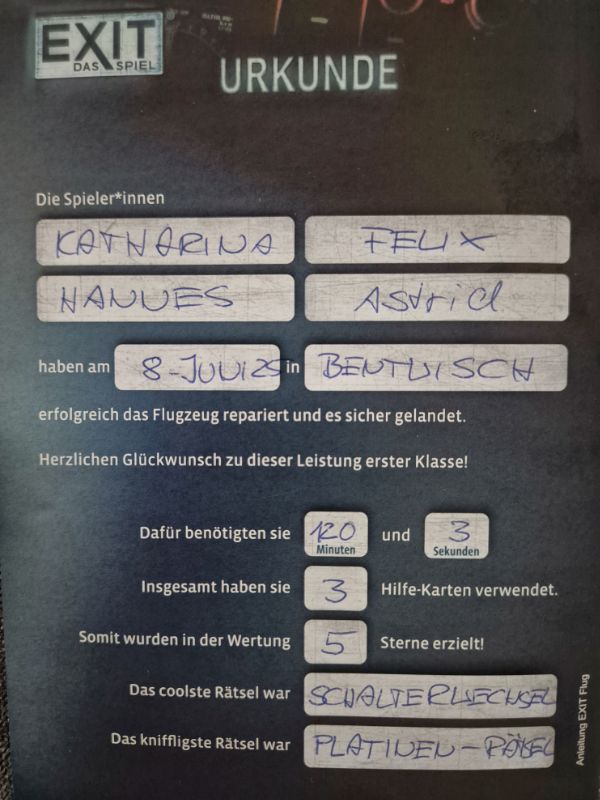 EXIT
DAS SPIEL
URKUNDE
Die Spieler*innen
KATHARINA FELIX
HANNES Astrid
haben am 8-JUNI 25 in BENTWISCH
erfolgreich das Flugzeug repariert und es sicher gelandet.
Herzlichen Glückwunsch zu dieser Leistung erster Klasse!
Dafür benötigten sie 120 Minuten und 3 Sekunden
Insgesamt haben sie 3 Hilfe-Karten verwendet.
Somit wurden in der Wertung 5 Sterne erzielt!
Das coolste Rätsel war SCHALTERWECHSEL
Das kniffligste Rätsel war PLATINEN-
Anleitung EXIT Flug